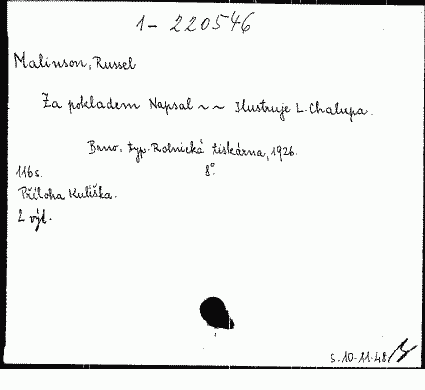 1- 220546
Malinson, Russel
Za pokladem Napsal ~ ~ Ilustruje L. Chalupa.
Brno, typ. Rolnická tiskárna, 1926.
116s. 8°.
Příloha Kulíška.
2 výt.
s. 10-11-48